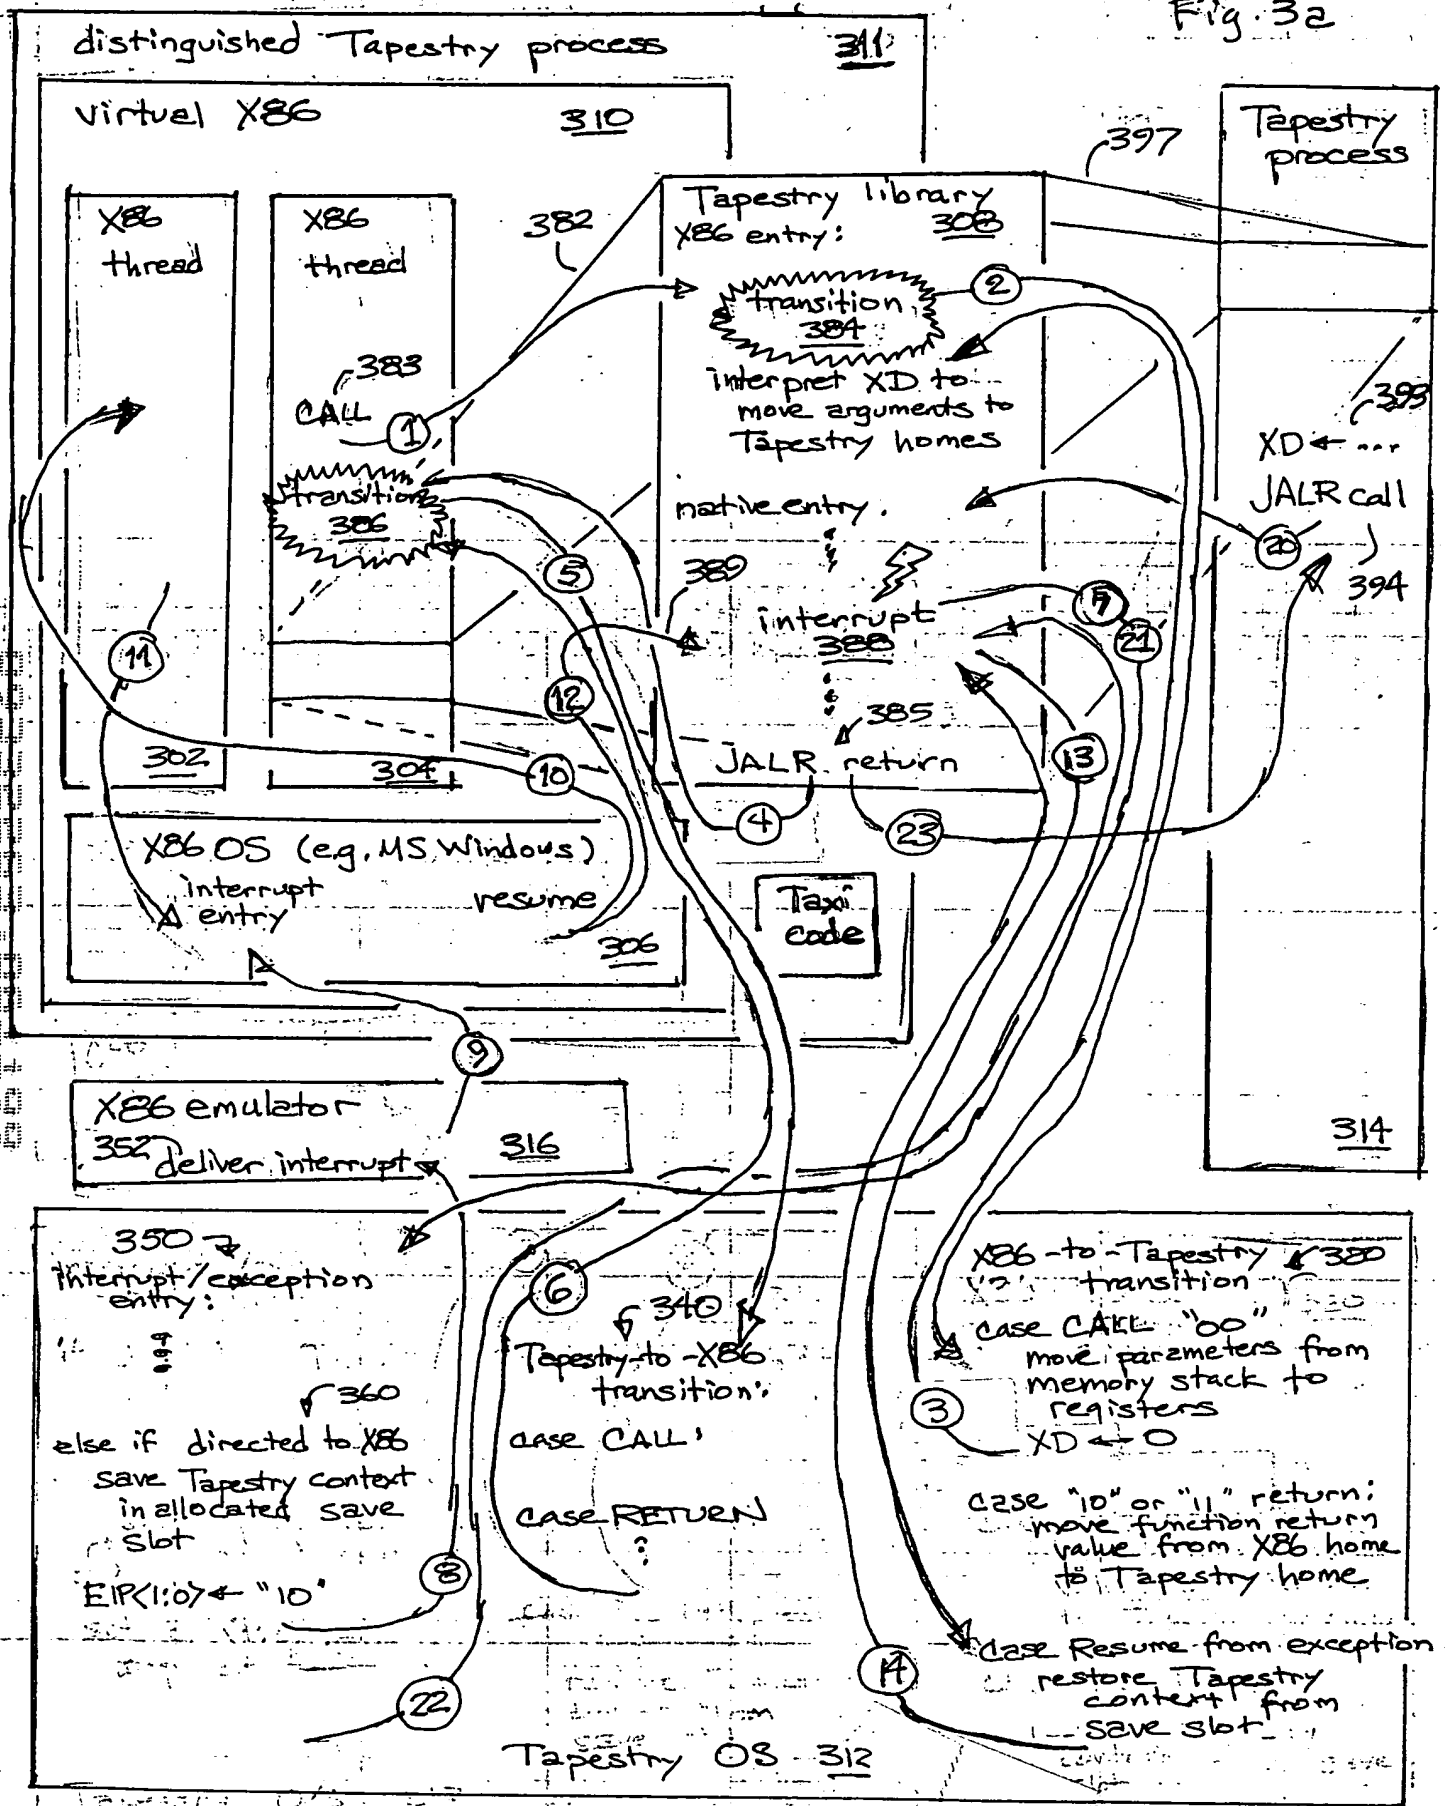 Fig. 3a
distinguished Tapestry process 311
virtual X86 310
X86
thread
X86
thread
382
383
CALL
1
transition
386
5
389
12
11
10
302
304
Tapestry library
X86 entry: 308
transition
384
2
interpret XD to
move arguments to
Tapestry homes
native entry.
interrupt
388
385
JALR return
7
21
13
4
23
397
Tapestry
process
393
XD ← ...
JALR call
20
394
314
X86 OS (e.g. MS Windows)
interrupt
entry
resume
306
Taxi
code
9
X86 emulator
352 deliver interrupt
316
350
interrupt/exception
entry:
360
else if directed to X86
save Tapestry context
in allocated save
slot
EIP<1:0> ← "10"
8
22
6
340
Tapestry-to-X86
transition:
case CALL:
case RETURN
X86-to-Tapestry 380
transition
case CALL "00"
move parameters from
memory stack to
registers
3
XD ← 0
case "10" or "11" return:
move function return
value from X86 home
to Tapestry home
case Resume from exception
restore Tapestry
context from
save slot
14
Tapestry OS 312